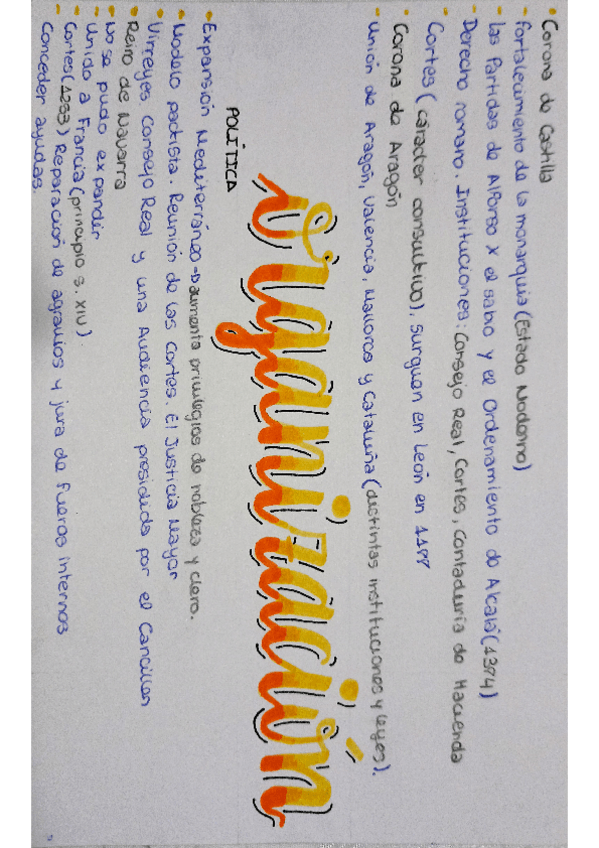 Corona de Castilla
fortalecimiento de la monarquía (Estado Moderno)
Las Partidas de Alfonso X el sabio y el Ordenamiento de Alcalá (1384)
Derecho romano. Instituciones: Consejo Real, Cortes, Contaduría de Hacienda
Cortes (cáracter consultivo). Surguen en León en 1188
Corona de Aragón
Unión de Aragón, Valencia, Mallorca y Cataluña (distintas instituciones y leyes).
Organización
POLÍTICA
Expansión Mediterráneo → aumenta privilegios de nobleza y clero.
Modelo pactista. Reunión de las Cortes. El Justicia Mayor
Virreyes Consejo Real y una Audiencia presidida por el Canciller
Reino de Navarra
No se pudo expandir
Unido a Francia (principio s. XIV)
Cortes (1253) Reparación de agravios y jura de fueros internos
Conceder ayudas.